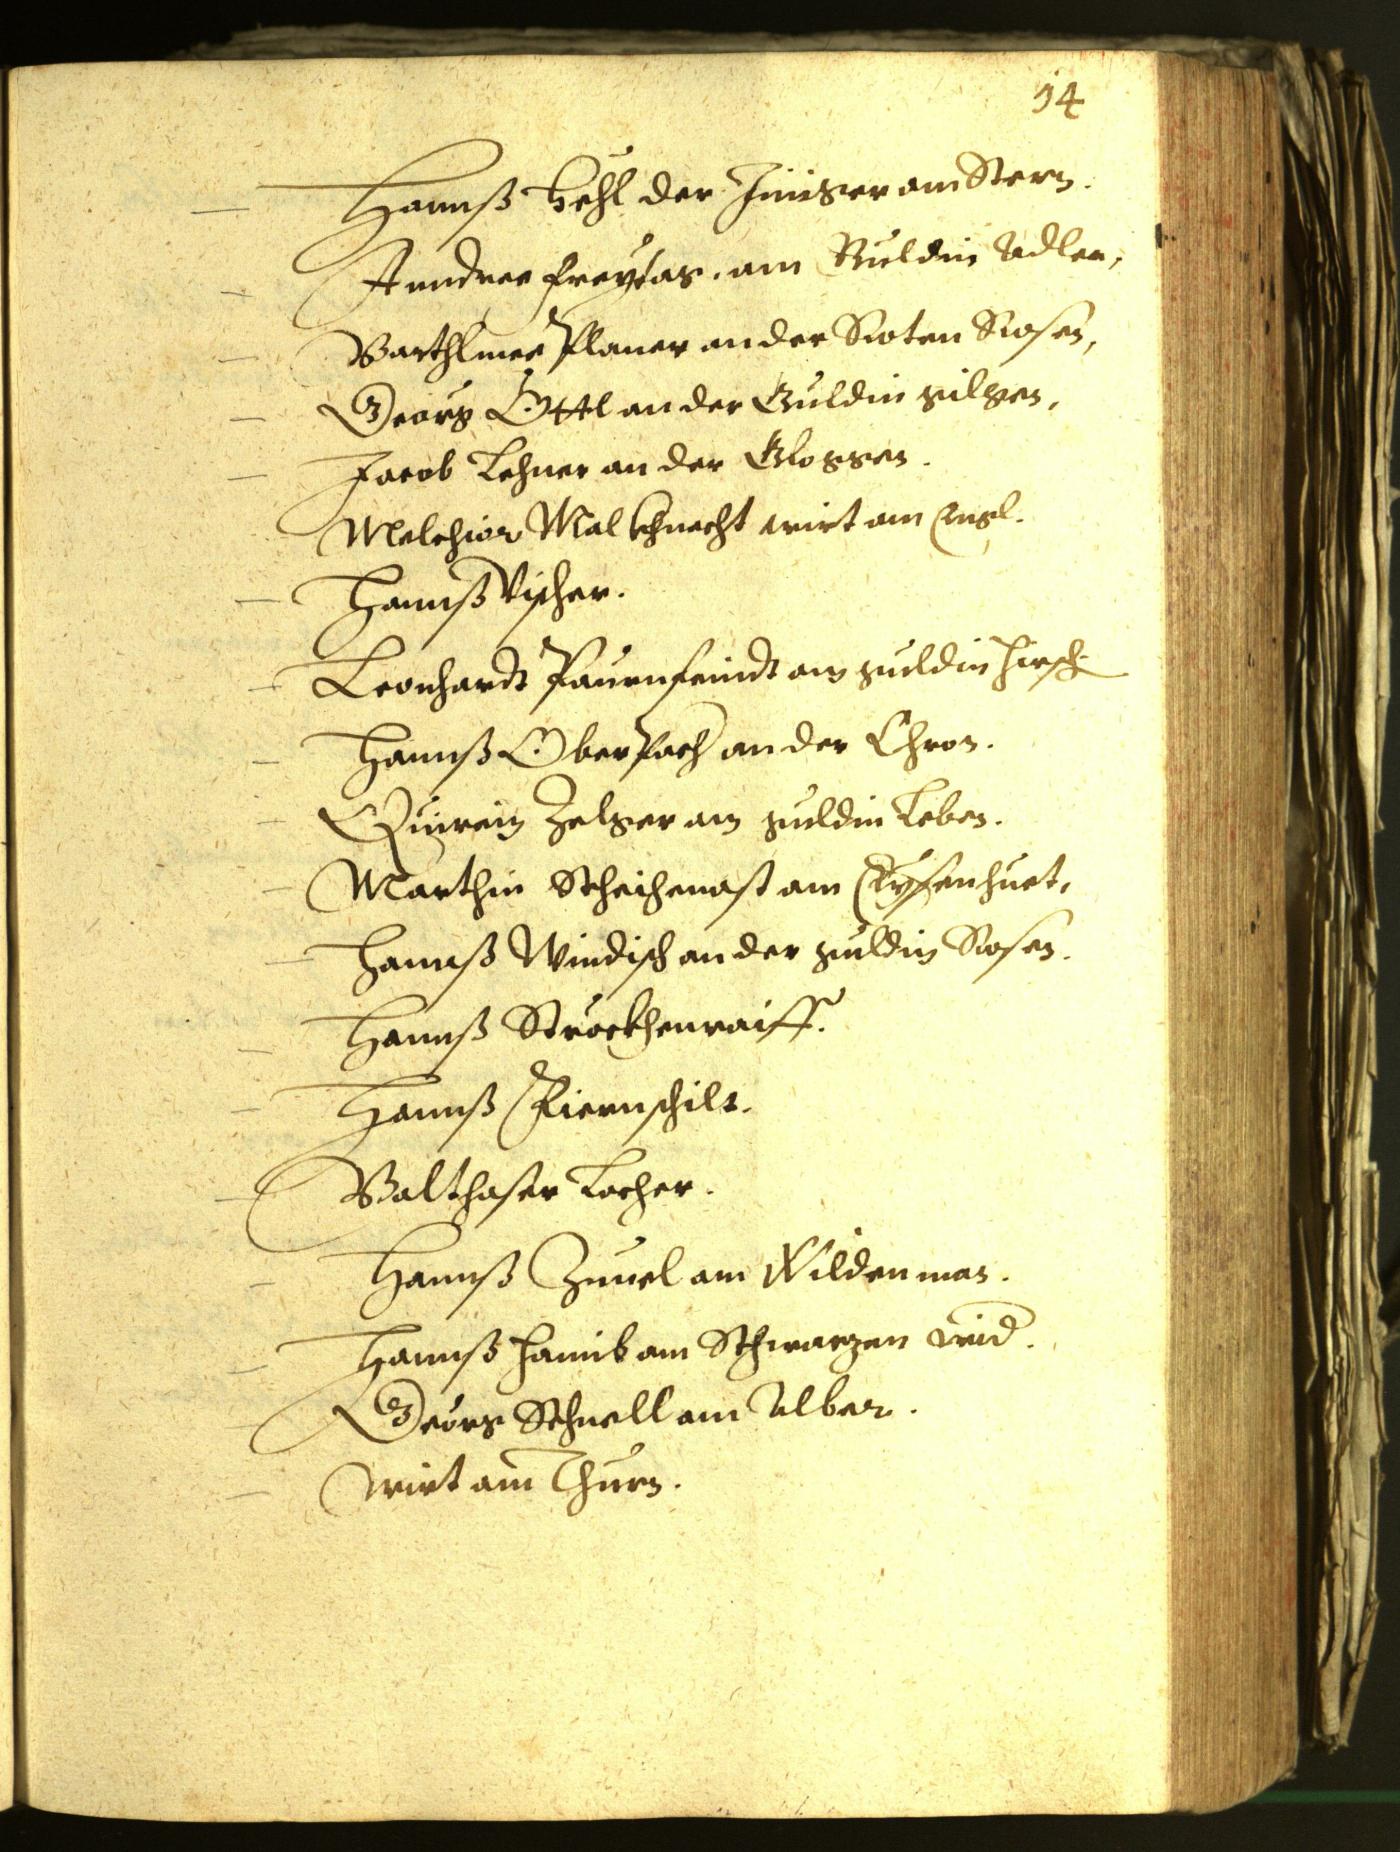 14
Hannß Kehl der Jünger am Stern.
Anndree Freytag. am Guldin Adler,
Barthlmee Planer an der Roten Rosen,
Georg Öttl an der Guldin gilgen,
Jacob Lehner an der Gloggen.
Melchior Malknecht wirt am Engl.
Hannß Vischer.
Leonhardt Paurnfeindt am guldin Hirsch
Hannß Oberpach an der Chron.
Quirein Zelger am guldin Leben.
Marthin Scheichenast am Eysenhuet,
Hannß Windisch an der guldin Rosen.
Hannß Strockhenraiff.
Hannß Fiernschilt.
Balthaser Locher.
Hannß am Wildenman.
Hannß am Schwarzen
Georg Schnell am Alber.
Wirt am Thurn.